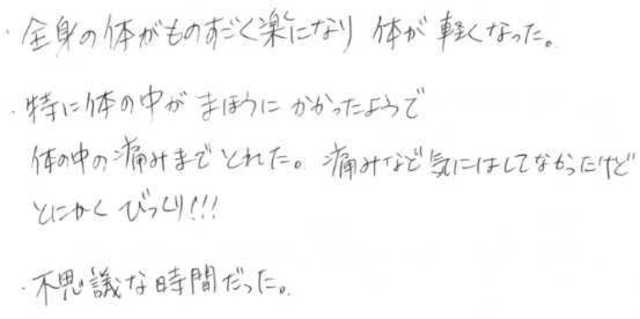 ・全身の体がものすごく楽になり 体が軽くなった。
・特に体の中が まほうに かかったようで
体の中の痛みまでとれた。痛みなど気にはしてなかったけど
とにかく びっくり!!!
・不思議な時間だった。